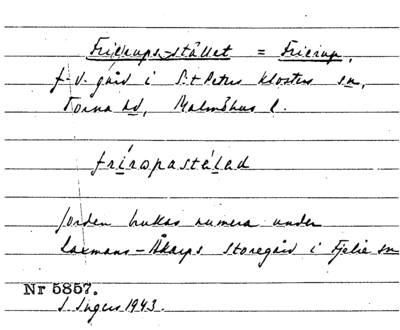 Frierups-stället = Frierup,
f. d. gård i S:t Peters klosters sn,
Torna hd, Malmöhus l.
friropastäled
Jorden brukas numera under
Laxmans-Åkarps Storegård i Fjelie sn
Nr 5857.
I. Ingers 1943.